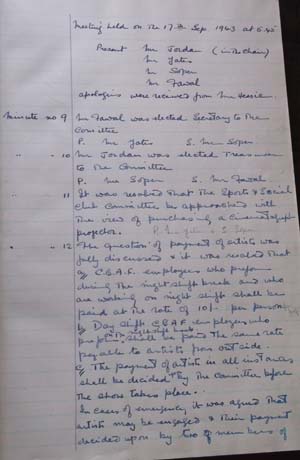 Meeting held on the 17th Sep 1943 at 6.45
Present Mr Jordan (in the Chair)
Mr Yates
Mr Soper
Mr Fawal
apologies were received from Mr
Minute no 9 Mr Fawal was elected Secretary to the
Committee
P. Mr Yates S. Mr Soper
" " 10 Mr Jordan was elected Treasurer
to the Committee
P. Mr Soper S. Mr Fawal
" " 11 It was resolved that the Sports & Social
Club Committee be approached with
the view of purchasing a Cinematograph
projector. P. Mr Yates S. Soper
" " 12 The question of payment of artists was
fully discussed & it was resolved that
a) C.B.A.F. employees who perform
during the night shift break and who
are working on night shift shall be
paid at the rate of 10/- per person
b) Day shift C.B.A.F. employees who
perform on night shift break shall be paid the same rate
payable to artists from outside.
c) The payment of artists in all instances
shall be decided by the Committee before
the show takes place.
In cases of emergency it was agreed that
artists may be engaged & their payment
decided upon by two members of